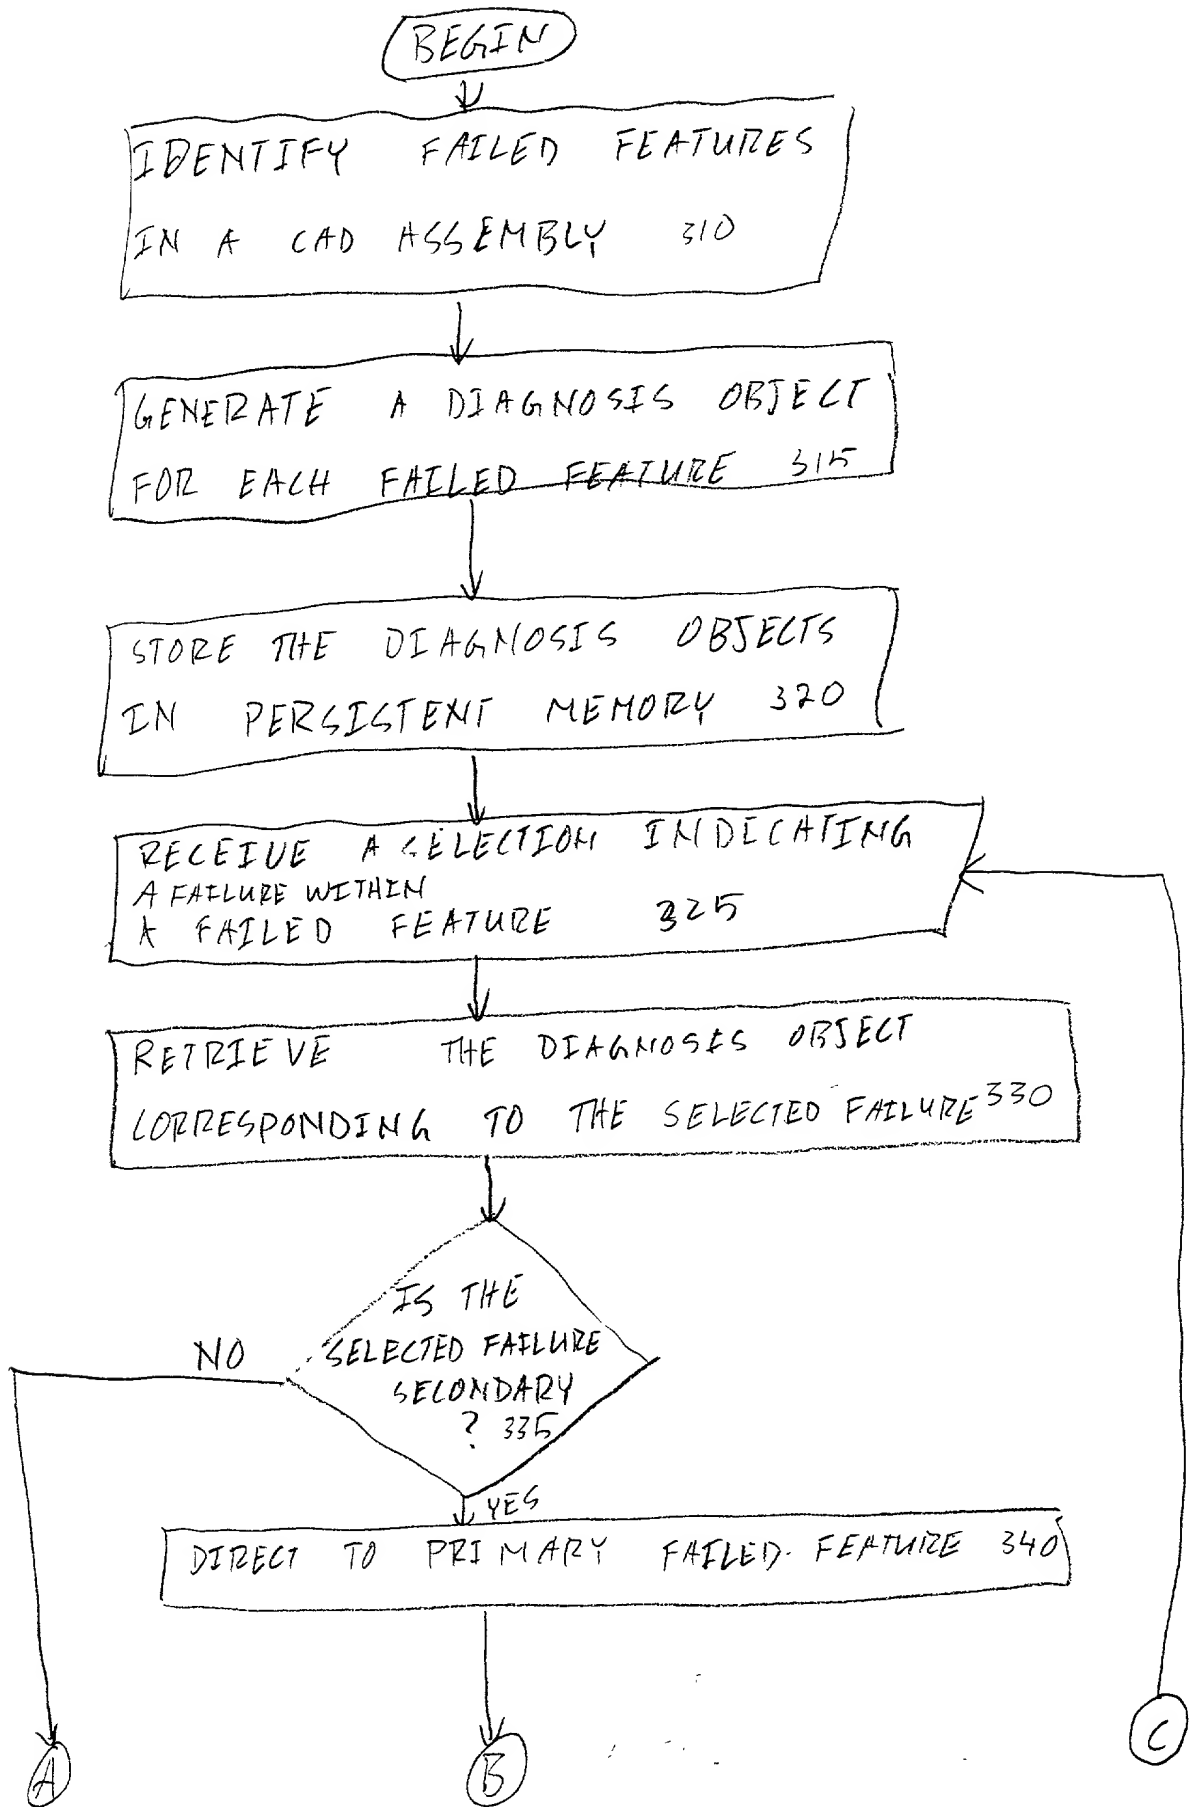 BEGIN
IDENTIFY FAILED FEATURES
IN A CAD ASSEMBLY 310
GENERATE A DIAGNOSIS OBJECT
FOR EACH FAILED FEATURE 315
STORE THE DIAGNOSIS OBJECTS
IN PERSISTENT MEMORY 320
RECEIVE A SELECTION INDICATING
A FAILURE WITHIN
A FAILED FEATURE 325
RETRIEVE THE DIAGNOSIS OBJECT
CORRESPONDING TO THE SELECTED FAILURE 330
IS THE
SELECTED FAILURE
SECONDARY
? 335
NO
YES
DIRECT TO PRIMARY FAILED FEATURE 340
A
B
C